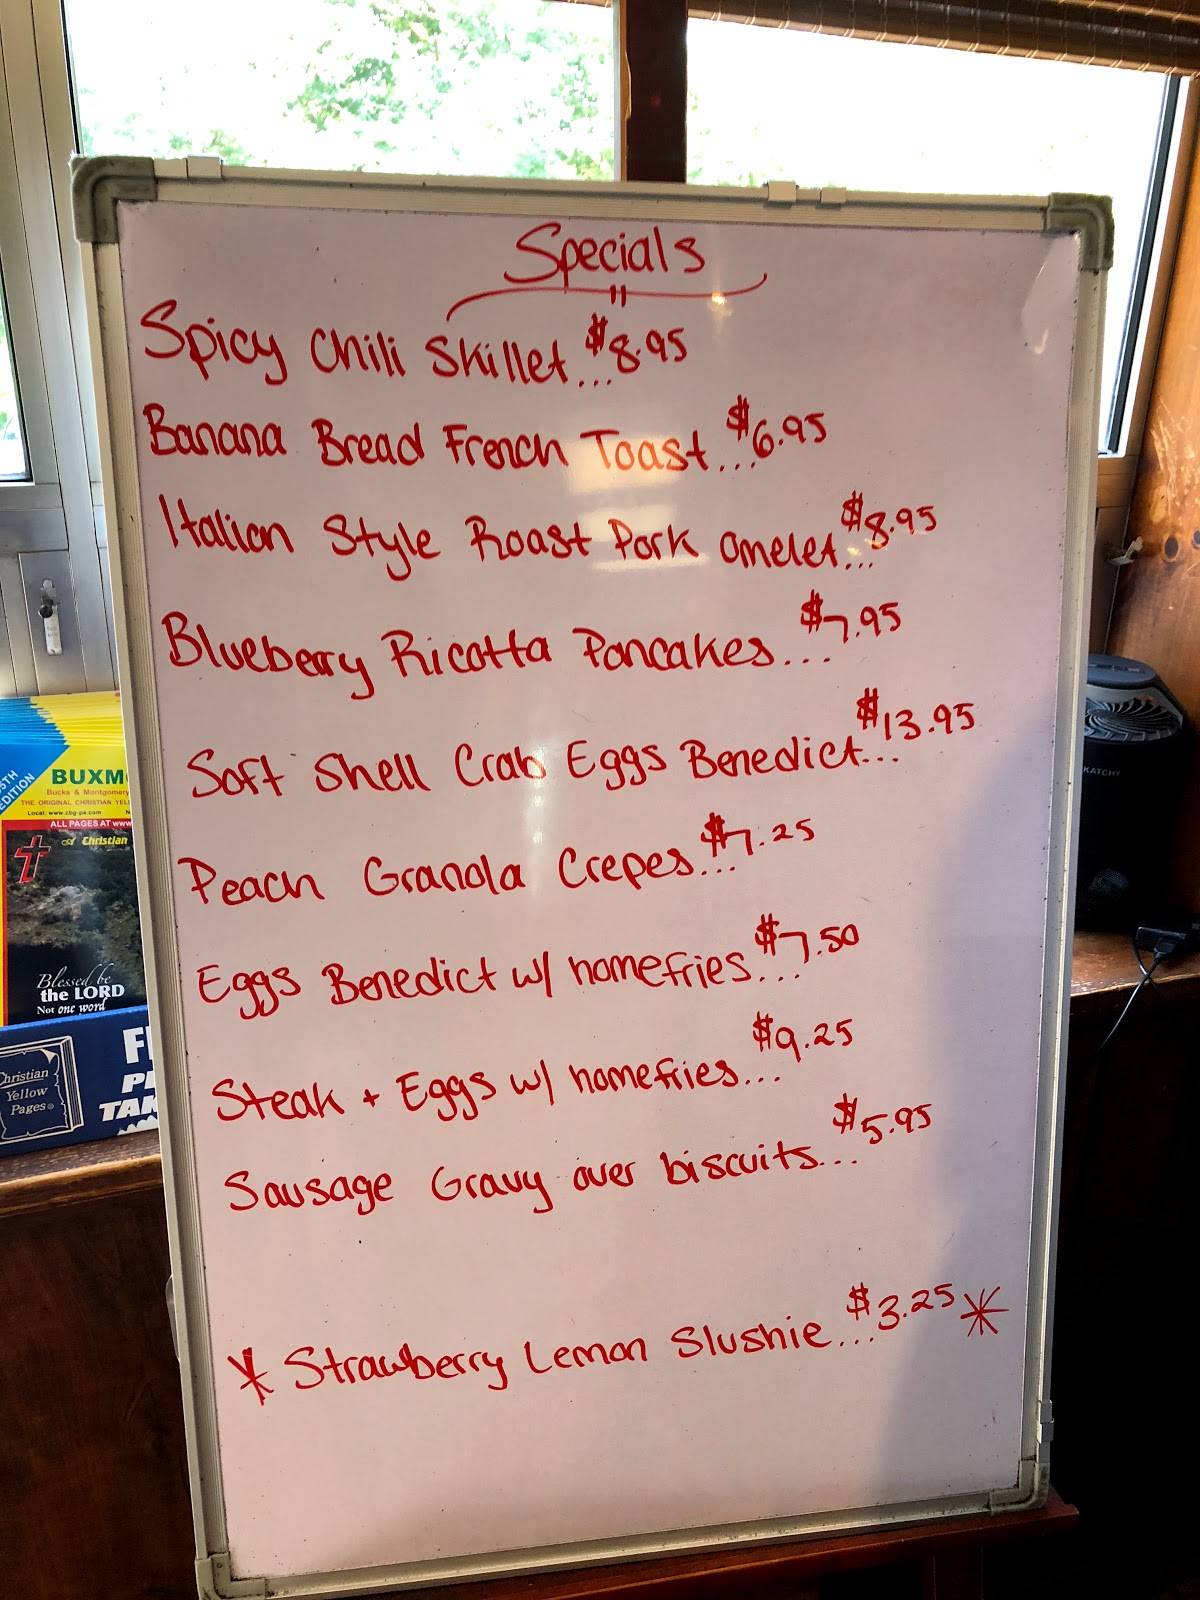 Specials
Spicy Chili Skillet...$8.95
Banana Bread French Toast...$6.95
Italian Style Roast Pork Omelet...$8.95
Blueberry Ricotta Pancakes...$7.95
Soft Shell Crab Eggs Benedict...$13.95
Peach Granola Crepes...$7.25
Eggs Benedict w/ homefries...$7.50
Steak + Eggs w/ homefries...$9.25
Sausage Gravy over biscuits...$5.95
* Strawberry Lemon Slushie...$3.25 *
5TH
EDITION
BUXM
Bucks & Montgomery
THE ORIGINAL CHRISTIAN YEL
Local: www.cbg-pa.com
ALL PAGES AT www
A Christian
Blessed be
the LORD
Not one word
Christian
Yellow
Pages
TAK
KATCHY